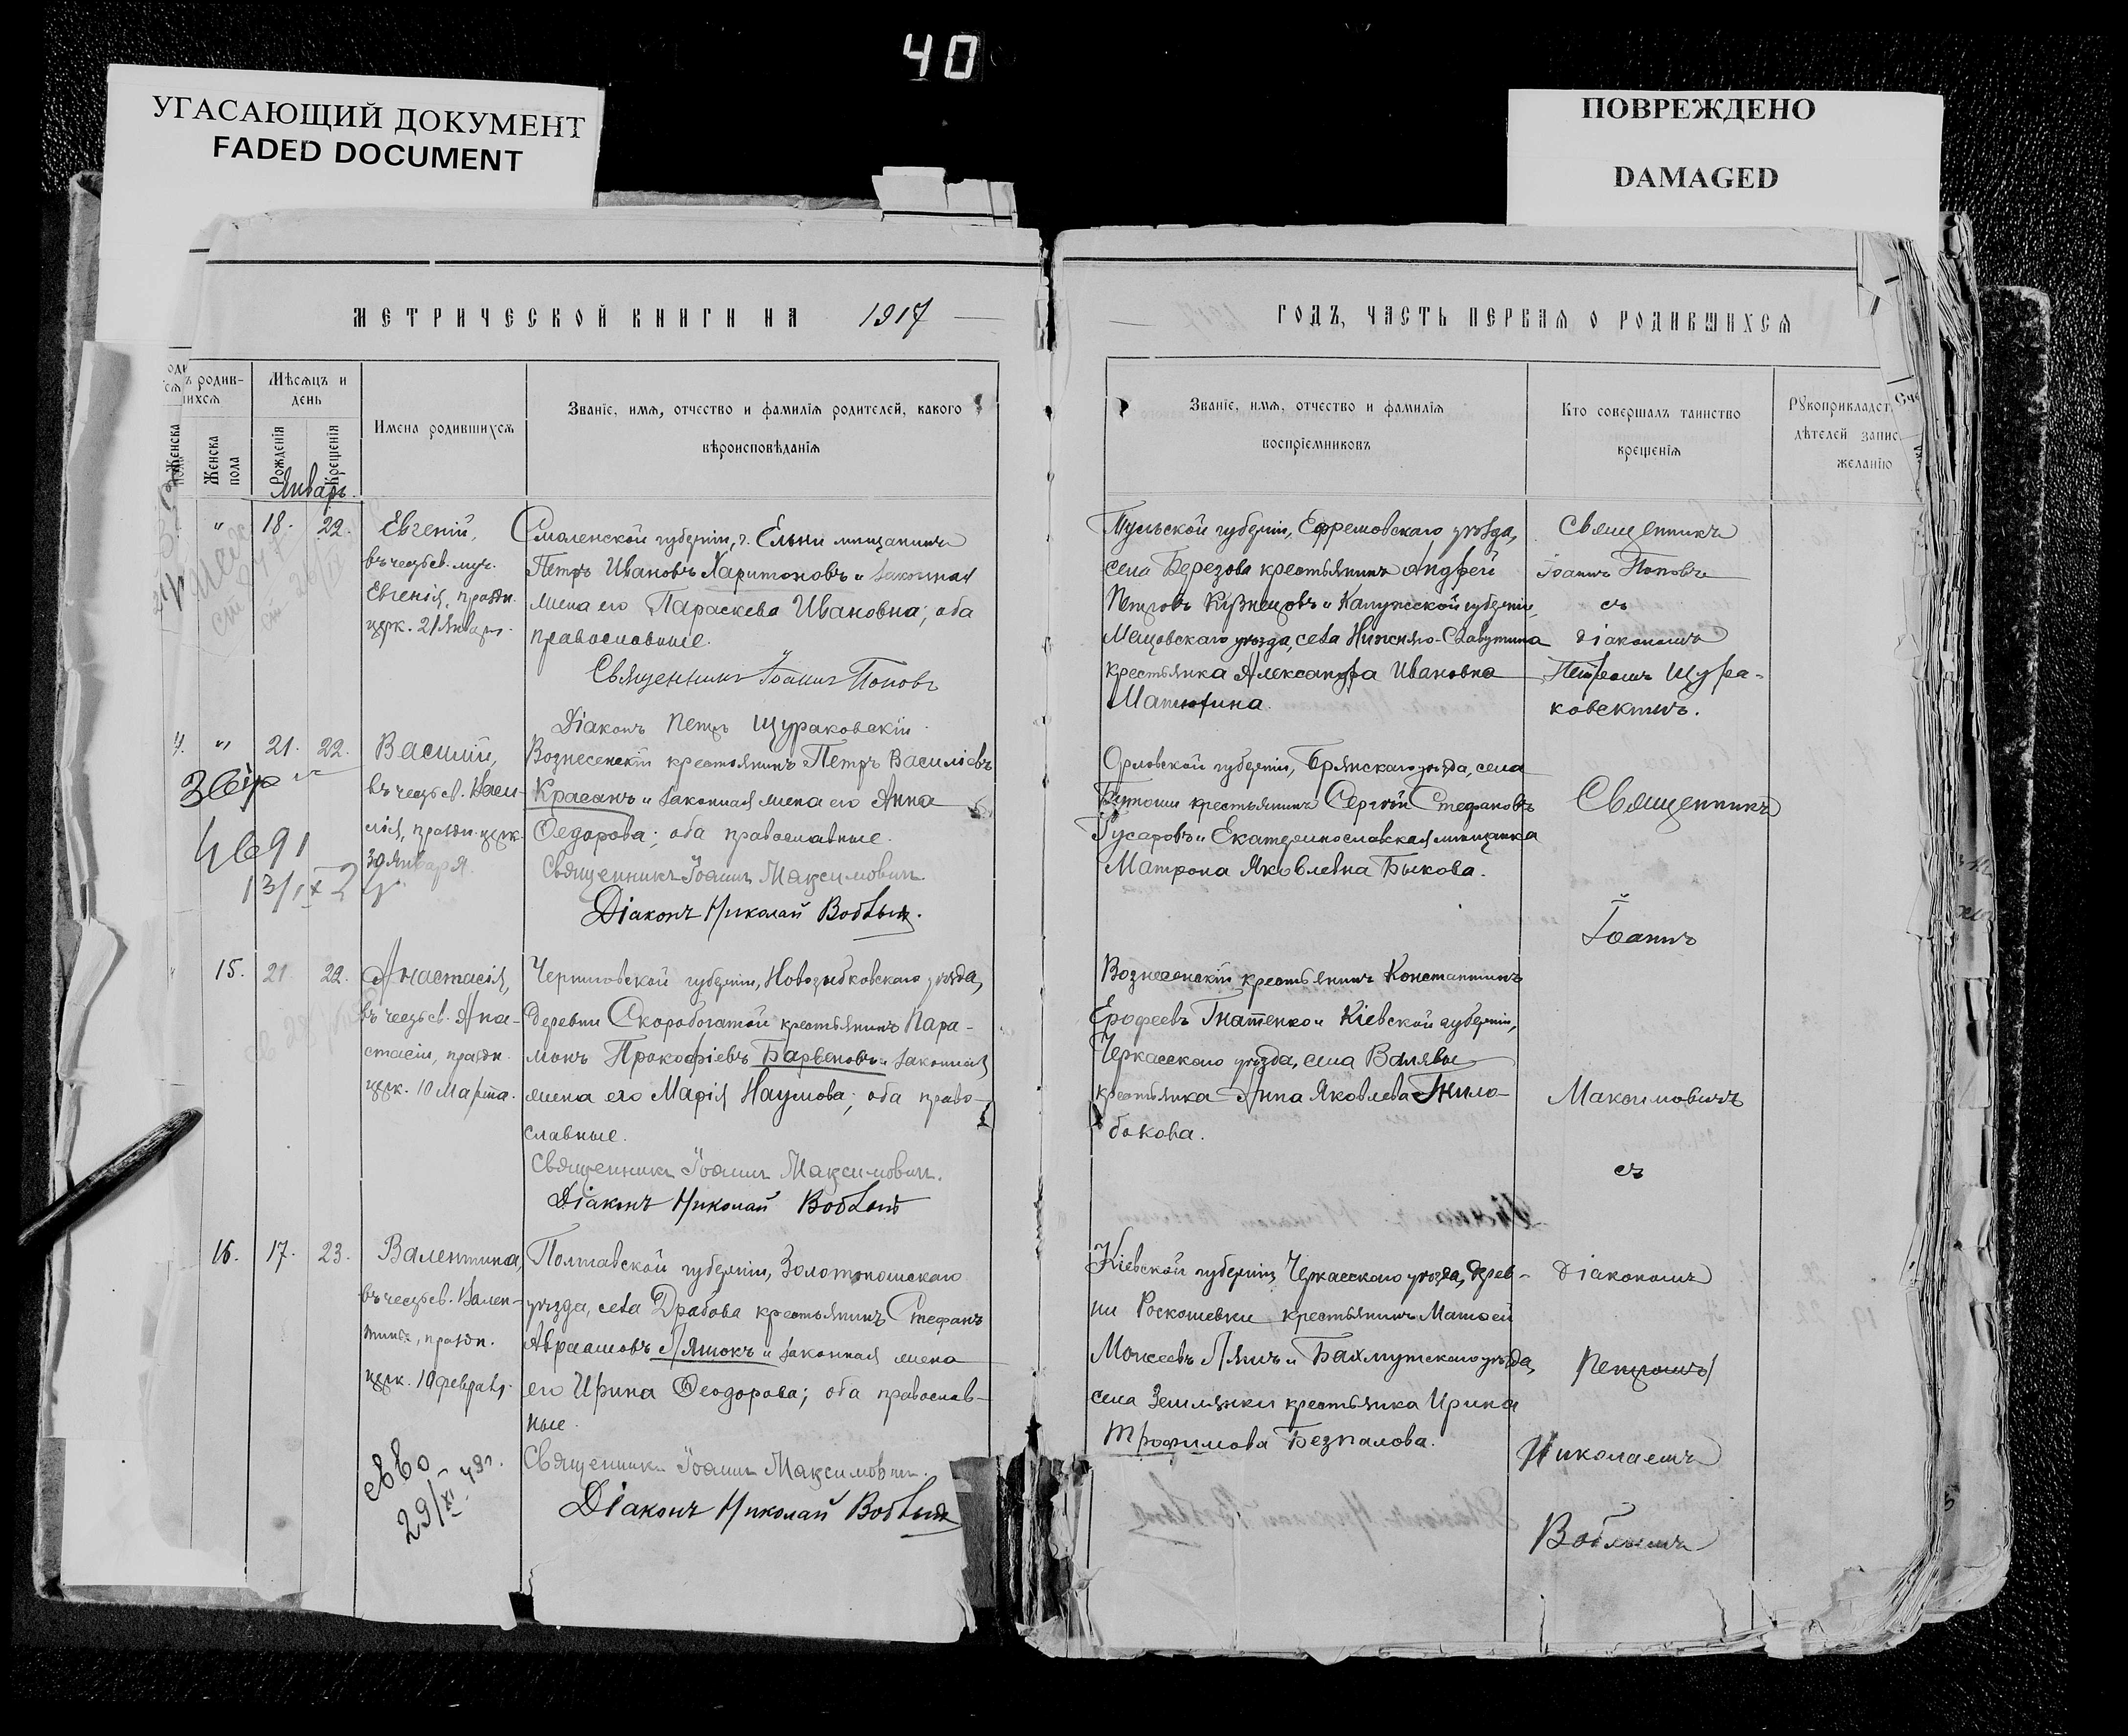 40
УГАСАЮЩИЙ ДОКУМЕНТ
FADED DOCUMENT
ПОВРЕЖДЕНО
DAMAGED
МЕТРИЧЕСКОЙ КНИГИ НА 1917
ГОДЪ, ЧАСТЬ ПЕРВАЯ О РОДИВШИХСЯ
Мѣсяцъ и
день
Женска
пола
Рожденія
Крещенія
Имена родившихся
Званіе, имя, отчество и фамилія родителей, какого
вѣроисповѣданія
Званіе, имя, отчество и фамилія
воспріемниковъ
Кто совершалъ таинство
крещенія
Январь.
" 18. 22.
Евгеній,
въ честь св. муч.
Евгенія, праздн.
церк. 21 Января.
Смоленской губерніи, г. Ельни мѣщанинъ
Петръ Ивановъ Харитоновъ и законная
жена его Параскева Ивановна; оба
православные.
Священникъ Іоаннъ Поповъ
Діаконъ Петръ Щураковскій
Тульской губерніи, Ефремовскаго уѣзда,
села Березова крестьянинъ Андрей
Петровъ Кузнецовъ и Калужской губерніи,
Мещовскаго уѣзда, села Нижняго-
крестьянка Александра Ивановна
Матюхина.
Священникъ
Іоаннъ Поповъ
съ
діакономъ
Петромъ Щура-
ковскимъ.
" 21. 22.
Василій,
въ честь св. Васи-
лія, праздн. церк.
30 Января.
Вознесенскій крестьянинъ Петръ Василіевъ
Красанъ и законная жена его Анна
Ѳедорова; оба православные.
Священникъ Іоаннъ Максимовичъ.
Діаконъ Николай Воблый.
4691
Орловской губерніи, Брянскаго уѣзда, села
крестьянинъ Сергѣй Стефановъ
Гусаровъ и Екатеринославская мѣщанка
Матрона Яковлевна Быкова.
Священникъ
Іоаннъ
Максимовичъ
съ
діакономъ
Николаемъ
Воблымъ
15. 21. 22.
Анастасія,
въ честь св. Ана-
стасіи, праздн.
церк. 10 Марта.
Черниговской губерніи, Новозыбковскаго уѣзда,
деревни Скоробогатой крестьянинъ Пара-
монъ Прокофіевъ и законная
жена его Марія Наумова; оба право-
славные.
Священникъ Іоаннъ Максимовичъ.
Діаконъ Николай Воблый
Вознесенскій крестьянинъ Константинъ
Ерофеевъ Игнатенко и Кіевской губерніи,
Черкасскаго уѣзда, села Валявы
крестьянка Анна Яковлева Гнило-
бокова.
16. 17. 23.
Валентина,
въ честь св. Вален-
тины, праздн.
церк. 10 февраля.
Полтавской губерніи, Золотоношскаго
уѣзда, села Драбова крестьянинъ Стефанъ
Авраамовъ Ляшокъ и законная жена
его Ирина Ѳеодорова; оба православ-
ные.
Священникъ Іоаннъ Максимовичъ.
Діаконъ Николай Воблый
Кіевской губерніи, Черкасскаго уѣзда, дерев-
ни Роскошевки крестьянинъ Матѳей
Моисеевъ Ляшъ и Бахмутскаго уѣзда,
села Землянки крестьянка Ирина
Трофимова Безпалова.